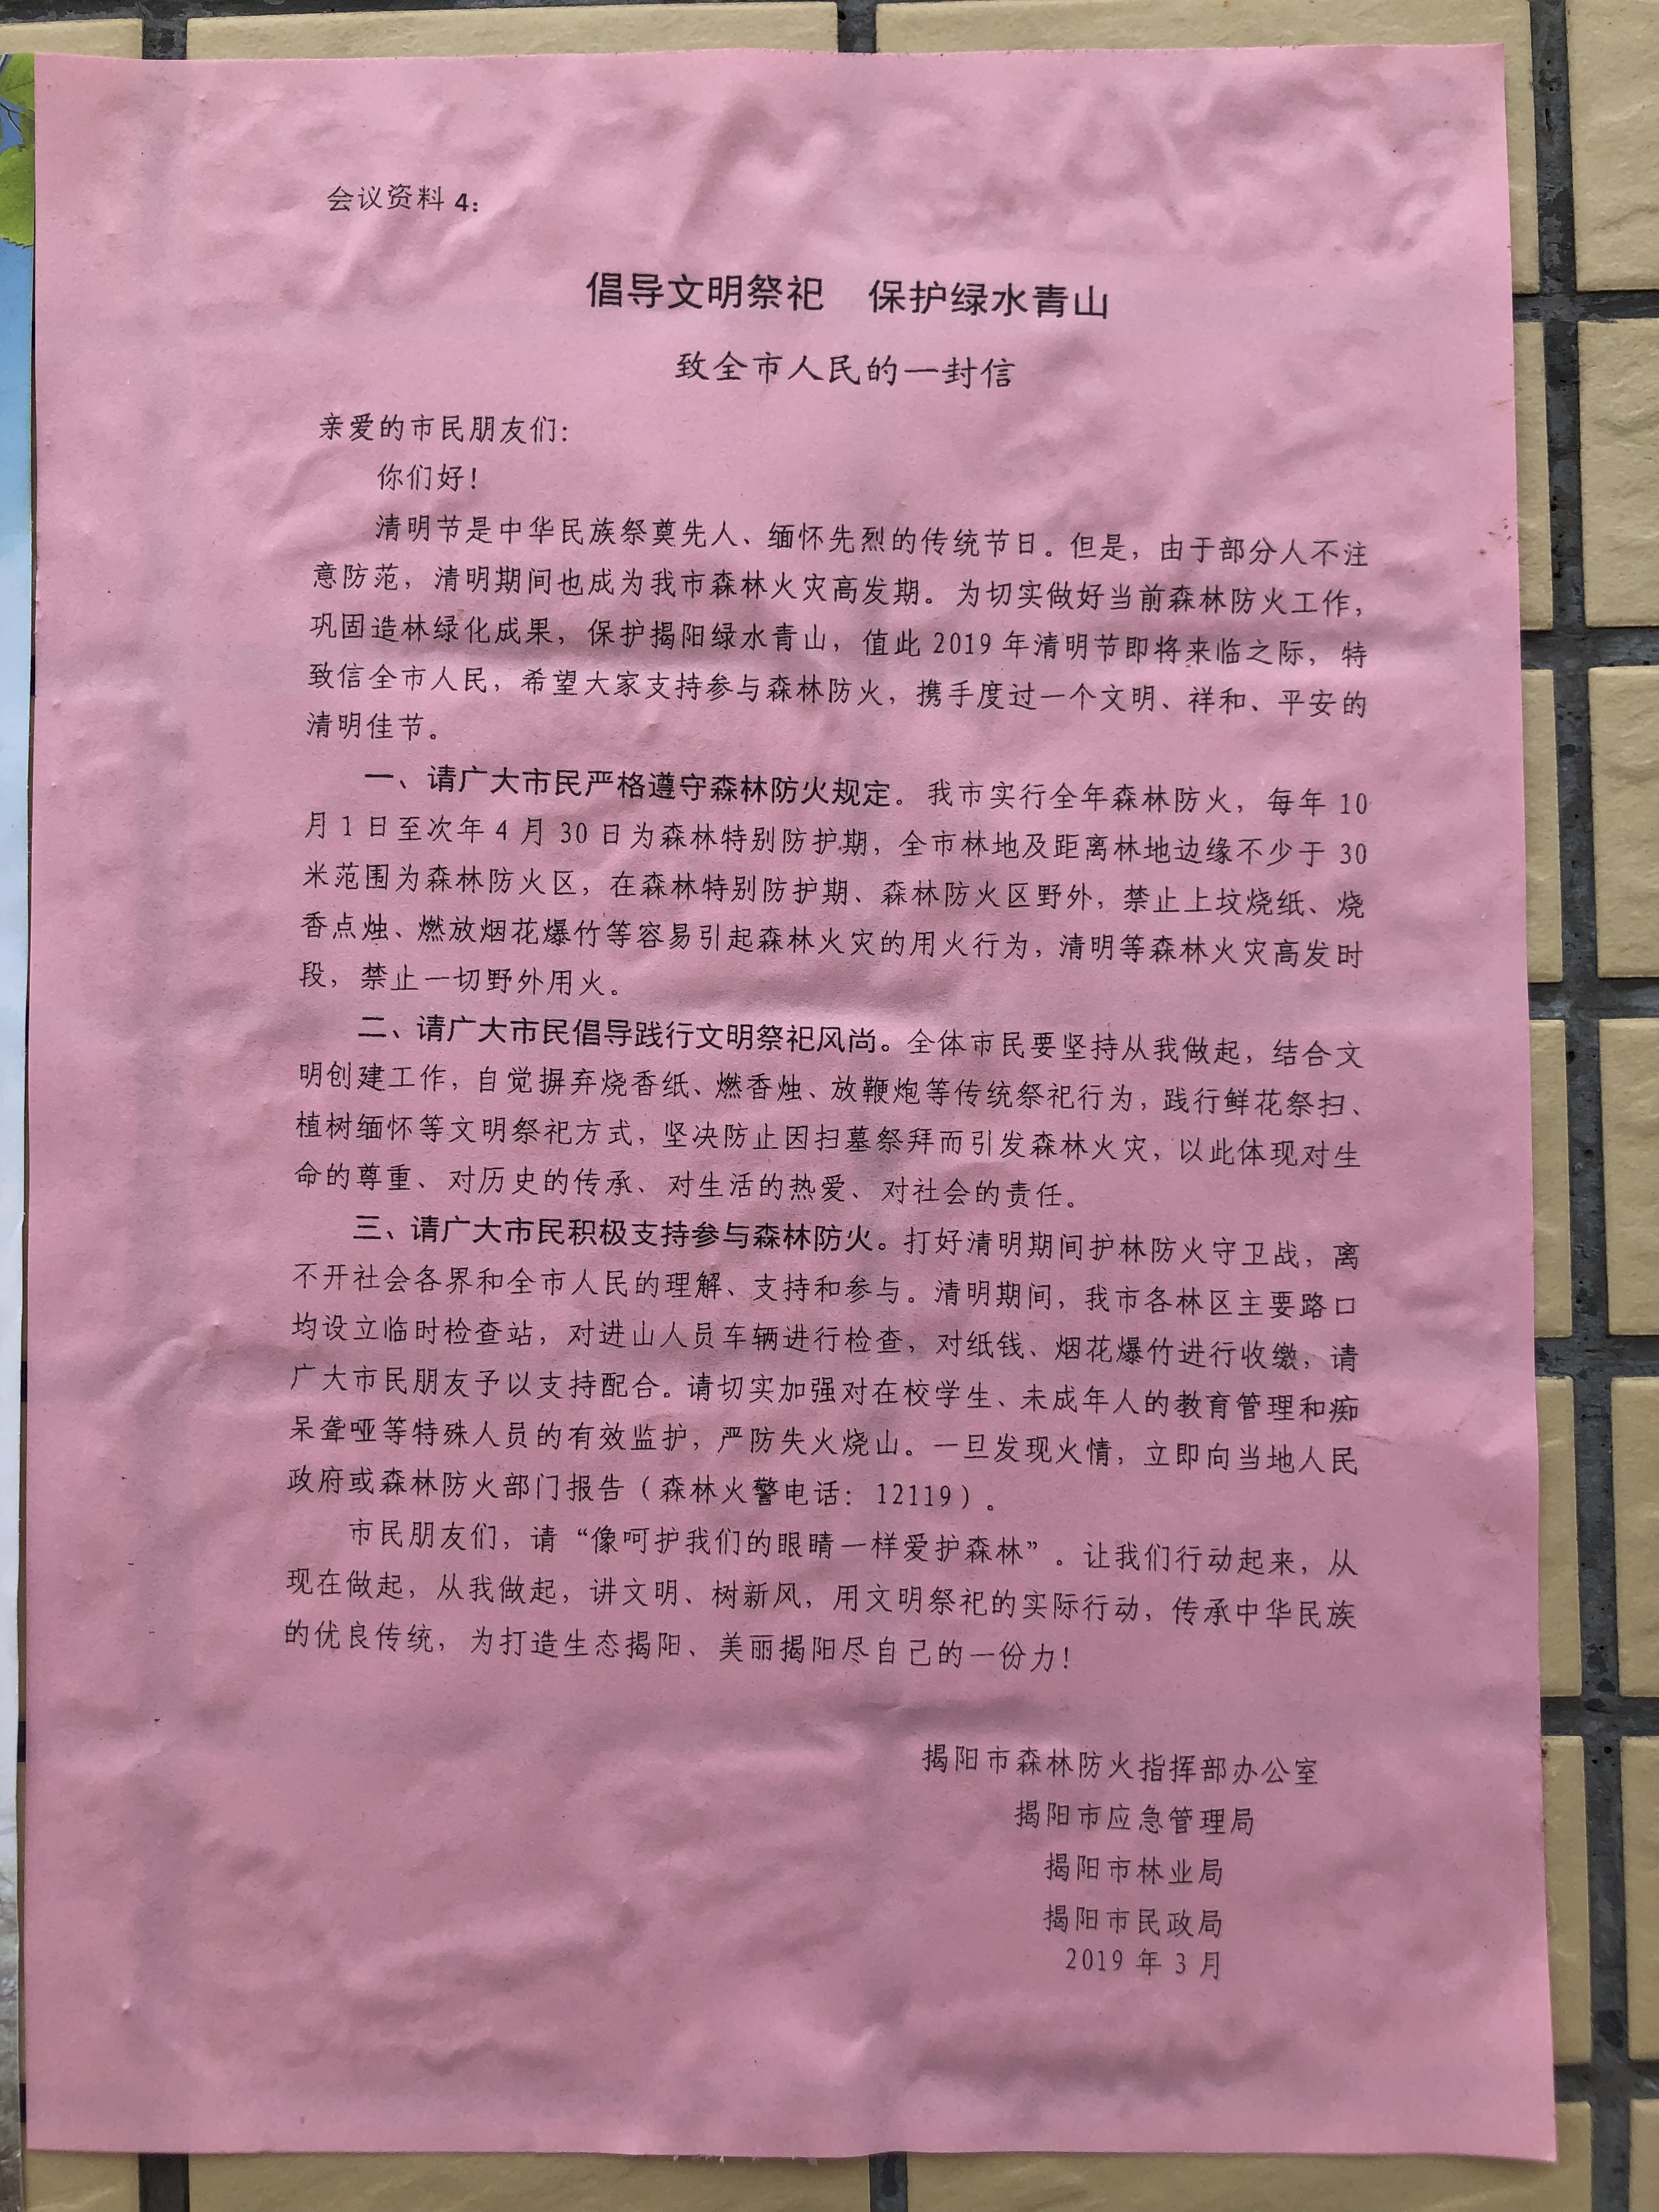 会议资料 4:
倡导文明祭祀　保护绿水青山
致全市人民的一封信
亲爱的市民朋友们:
你们好!
清明节是中华民族祭奠先人、缅怀先烈的传统节日。但是, 由于部分人不注
意防范, 清明期间也成为我市森林火灾高发期。为切实做好当前森林防火工作,
巩固造林绿化成果, 保护揭阳绿水青山, 值此 2019 年清明节即将来临之际, 特
致信全市人民, 希望大家支持参与森林防火, 携手度过一个文明、祥和、平安的
清明佳节。
一、请广大市民严格遵守森林防火规定。我市实行全年森林防火, 每年 10
月 1 日至次年 4 月 30 日为森林特别防护期, 全市林地及距离林地边缘不少于 30
米范围为森林防火区, 在森林特别防护期、森林防火区野外, 禁止上坟烧纸、烧
香点烛、燃放烟花爆竹等容易引起森林火灾的用火行为, 清明等森林火灾高发时
段, 禁止一切野外用火。
二、请广大市民倡导践行文明祭祀风尚。全体市民要坚持从我做起, 结合文
明创建工作, 自觉摒弃烧香纸、燃香烛、放鞭炮等传统祭祀行为, 践行鲜花祭扫、
植树缅怀等文明祭祀方式, 坚决防止因扫墓祭拜而引发森林火灾, 以此体现对生
命的尊重、对历史的传承、对生活的热爱、对社会的责任。
三、请广大市民积极支持参与森林防火。打好清明期间护林防火守卫战, 离
不开社会各界和全市人民的理解、支持和参与。清明期间, 我市各林区主要路口
均设立临时检查站, 对进山人员车辆进行检查, 对纸钱、烟花爆竹进行收缴, 请
广大市民朋友予以支持配合。请切实加强对在校学生、未成年人的教育管理和痴
呆聋哑等特殊人员的有效监护, 严防失火烧山。一旦发现火情, 立即向当地人民
政府或森林防火部门报告（森林火警电话: 12119）。
市民朋友们, 请“像呵护我们的眼睛一样爱护森林”。让我们行动起来, 从
现在做起, 从我做起, 讲文明、树新风, 用文明祭祀的实际行动, 传承中华民族
的优良传统, 为打造生态揭阳、美丽揭阳尽自己的一份力!
揭阳市森林防火指挥部办公室
揭阳市应急管理局
揭阳市林业局
揭阳市民政局
2019 年 3 月